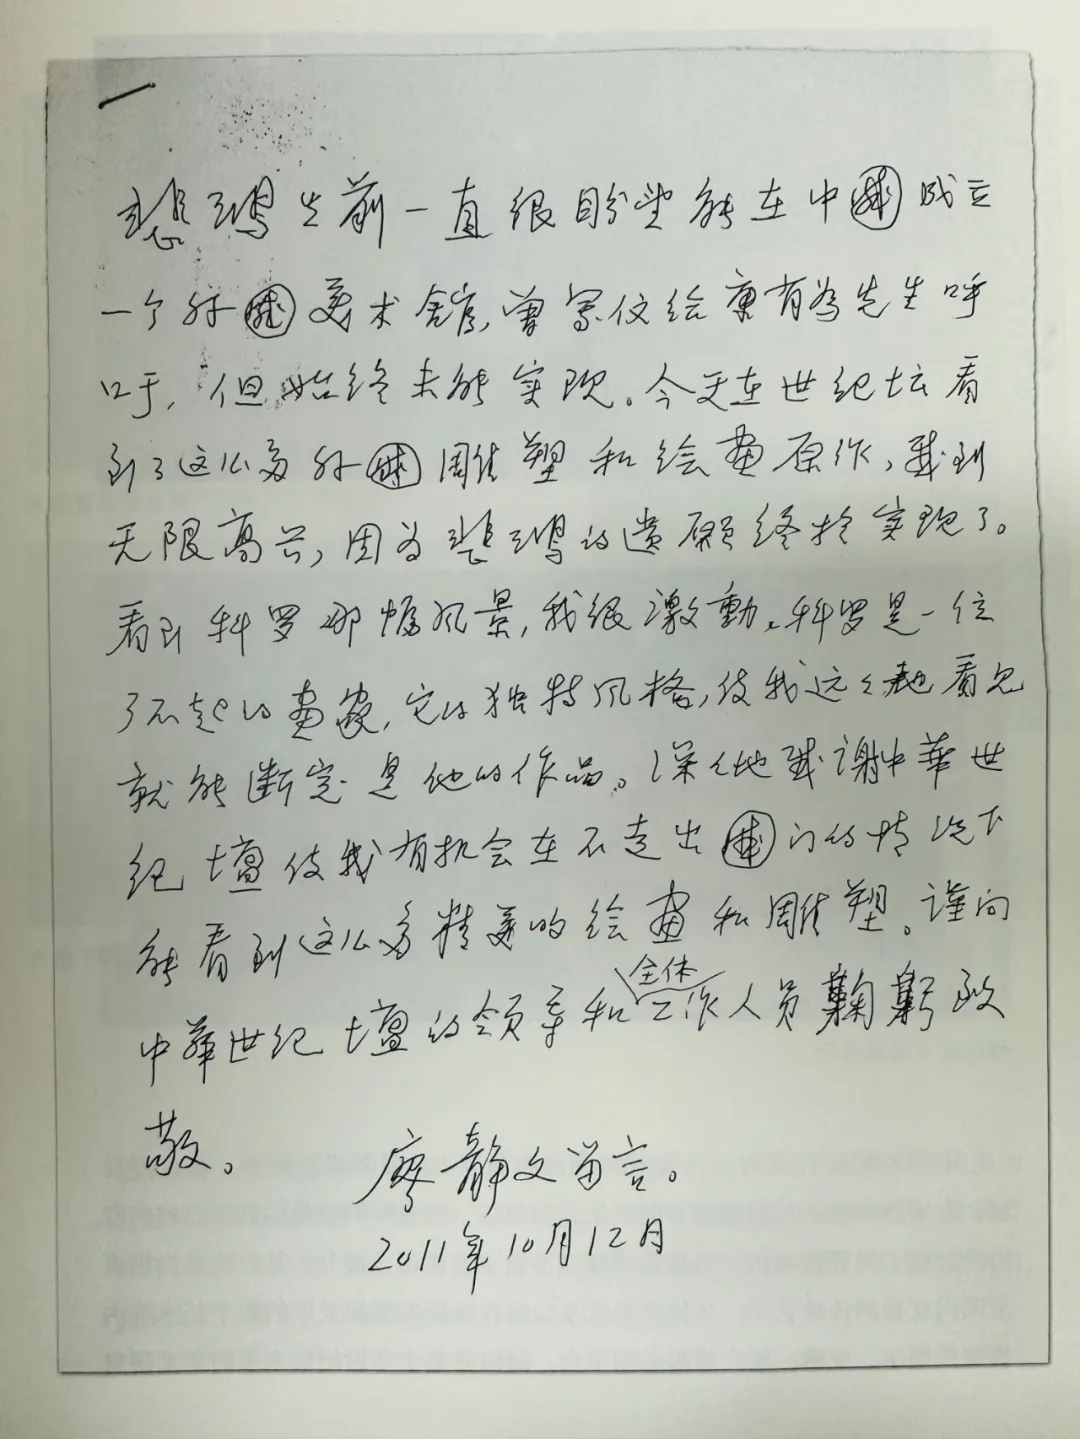 悲鸿生前一直很盼望能在中國成立
一个外國美术舘，曾写信给康有为先生呼
吁，但始终未能实现。今天在世纪坛看
到了这么多外國雕塑和绘画原作，感到
无限高兴，因为悲鸿的遗愿终於实现了。
看到科罗那幅风景，我很激動。科罗是一位
了不起的画家，它的独特风格，使我远远地看见
就能断定是他的作品。深深地感谢中華世
纪壇使我有机会在不走出國门的情况下
能看到这么多精美的绘画和雕塑。谨向
中華世纪壇的领导和全体工作人员鞠躬致
敬。
廖静文留言。
2011年10月12日